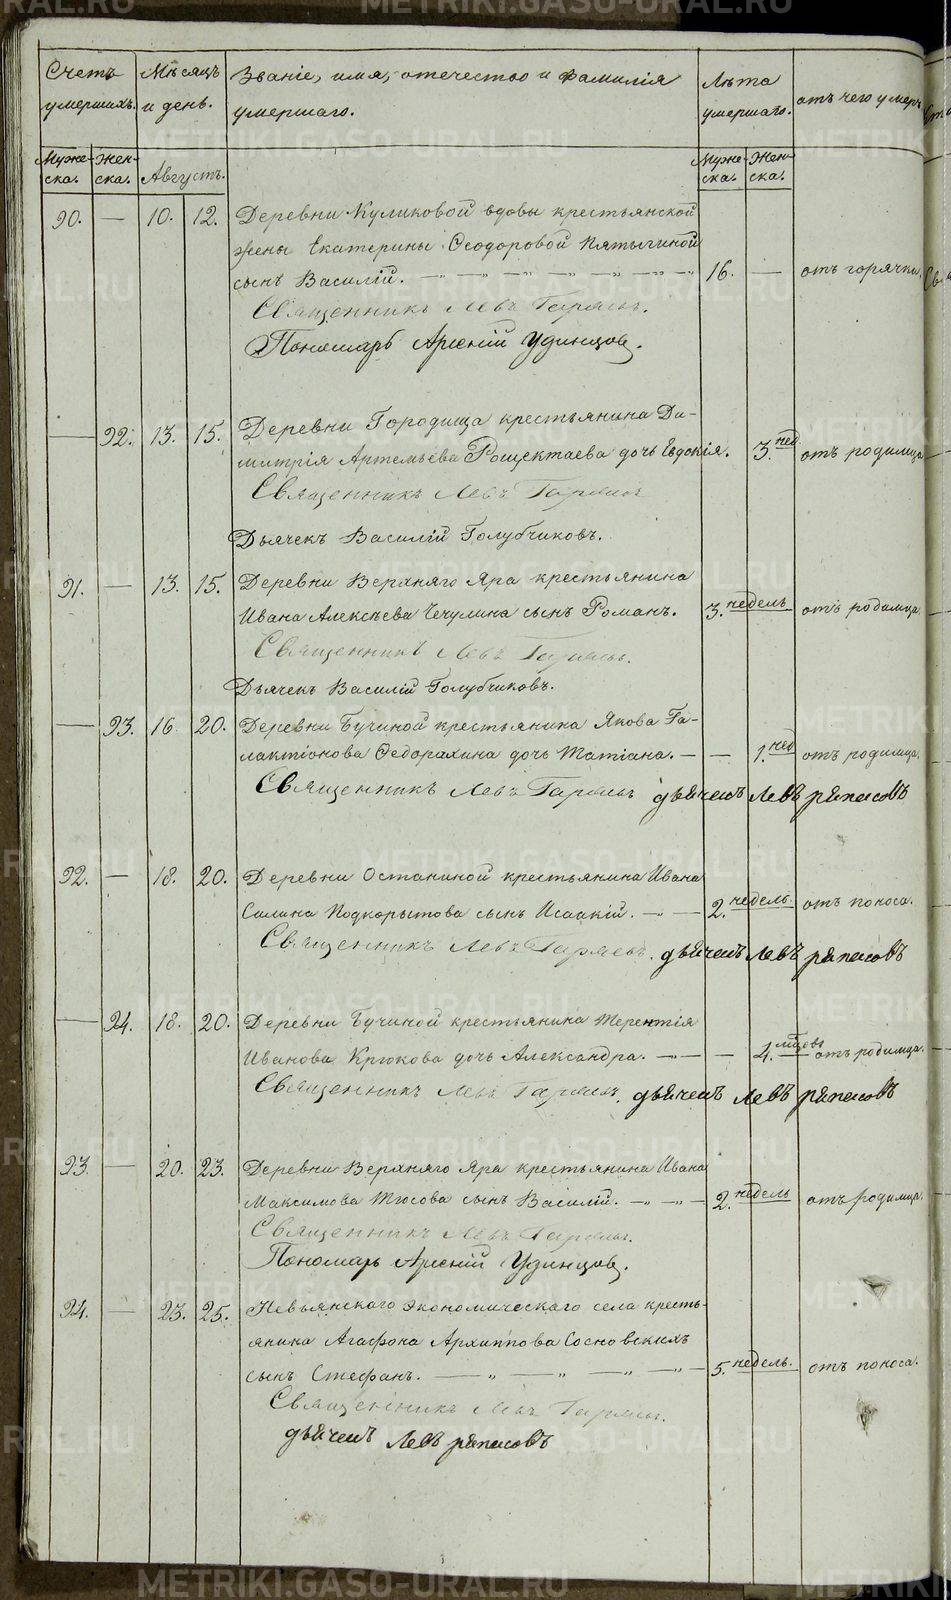 Счетъ умершихъ.
Мѣсяцъ и день.
Званіе, имя, отечество и фамилія умершаго.
Лѣта умершаго.
отъ чего умеръ
Муже-ска. Жен-ска. Августъ. Муже-ска. Жен-ска.
90. — 10. 12. Деревни Куликовой вдовы крестьянской
жены Екатерины Ѳеодоровой Пятыгиной
сынъ Василій. 16. — отъ горячки.
Священникъ Левъ
Пономарь Арсеній Удинцов.
— 92. 13. 15. Деревни Городища крестьянина Ди-
митрія Артемьева Рощектаева дочь Евдокія. 3. нед. отъ родимца
Священникъ Левъ
Дьячекъ Василій Голубчиковъ.
91. — 13. 15. Деревни Верхняго Яра крестьянина
Ивана Алексѣева Чечулина сынъ Романъ. 3. недель отъ родимца.
Священникъ Левъ
Дьячекъ Василій Голубчиковъ.
— 93. 16 20. Деревни Бучиной крестьянина Якова Га-
лактіонова Ѳедорахина дочь Татіана. — — 1. нед отъ родимца.
Священникъ Левъ дьячекъ Левъ
92. — 18. 20. Деревни Останиной крестьянина Ивана
Силина Подкорытова сынъ Исаакій. 2. недель. отъ поноса.
Священникъ Левъ дьячекъ Левъ
— 94. 18. 20. Деревни Бучиной крестьянина Терентія
Иванова Крюкова дочь Александра. — 4. мѣсяцъ отъ родимца.
Священникъ Левъ дьячекъ Левъ
93 — 20. 23. Деревни Верхняго Яра крестьянина Ивана
Максимова Тюсова сынъ Василій. 2. недель отъ родимца.
Священникъ Левъ
Пономарь Арсеній Удинцов.
94. — 23. 25. Невьянскаго экономическаго села кресть-
янина Агафона Архиппова Сосновскихъ
сынъ Стефанъ. 5. недель. отъ поноса.
Священникъ Левъ
дьячекъ Левъ